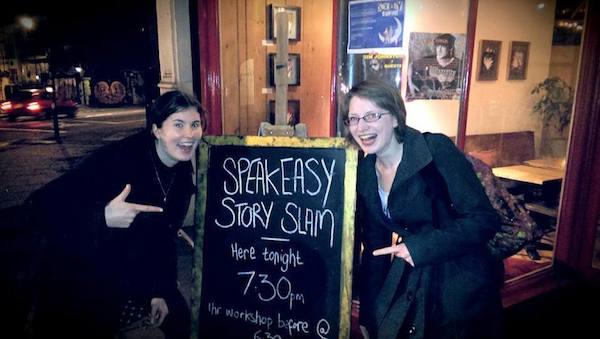 SPEAKEASY
STORY SLAM
Here tonight
7.30pm
1hr workshop before @
6.30